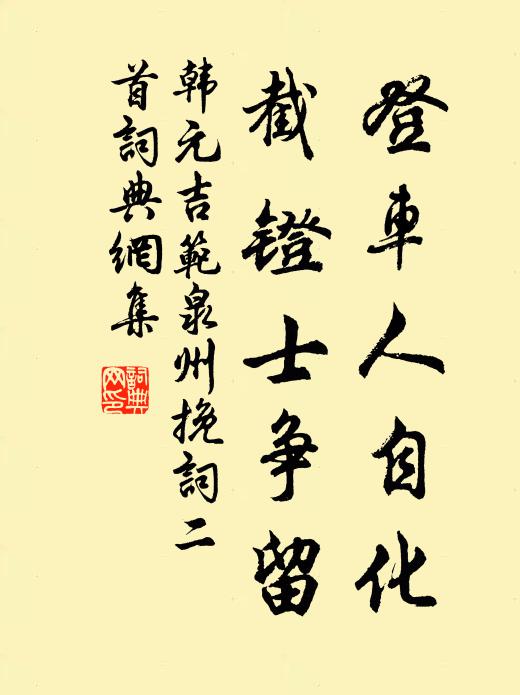 登車人自化
截鐙士争留
韩元吉範泉州挽詞二
首詞典網集
詞典
网印